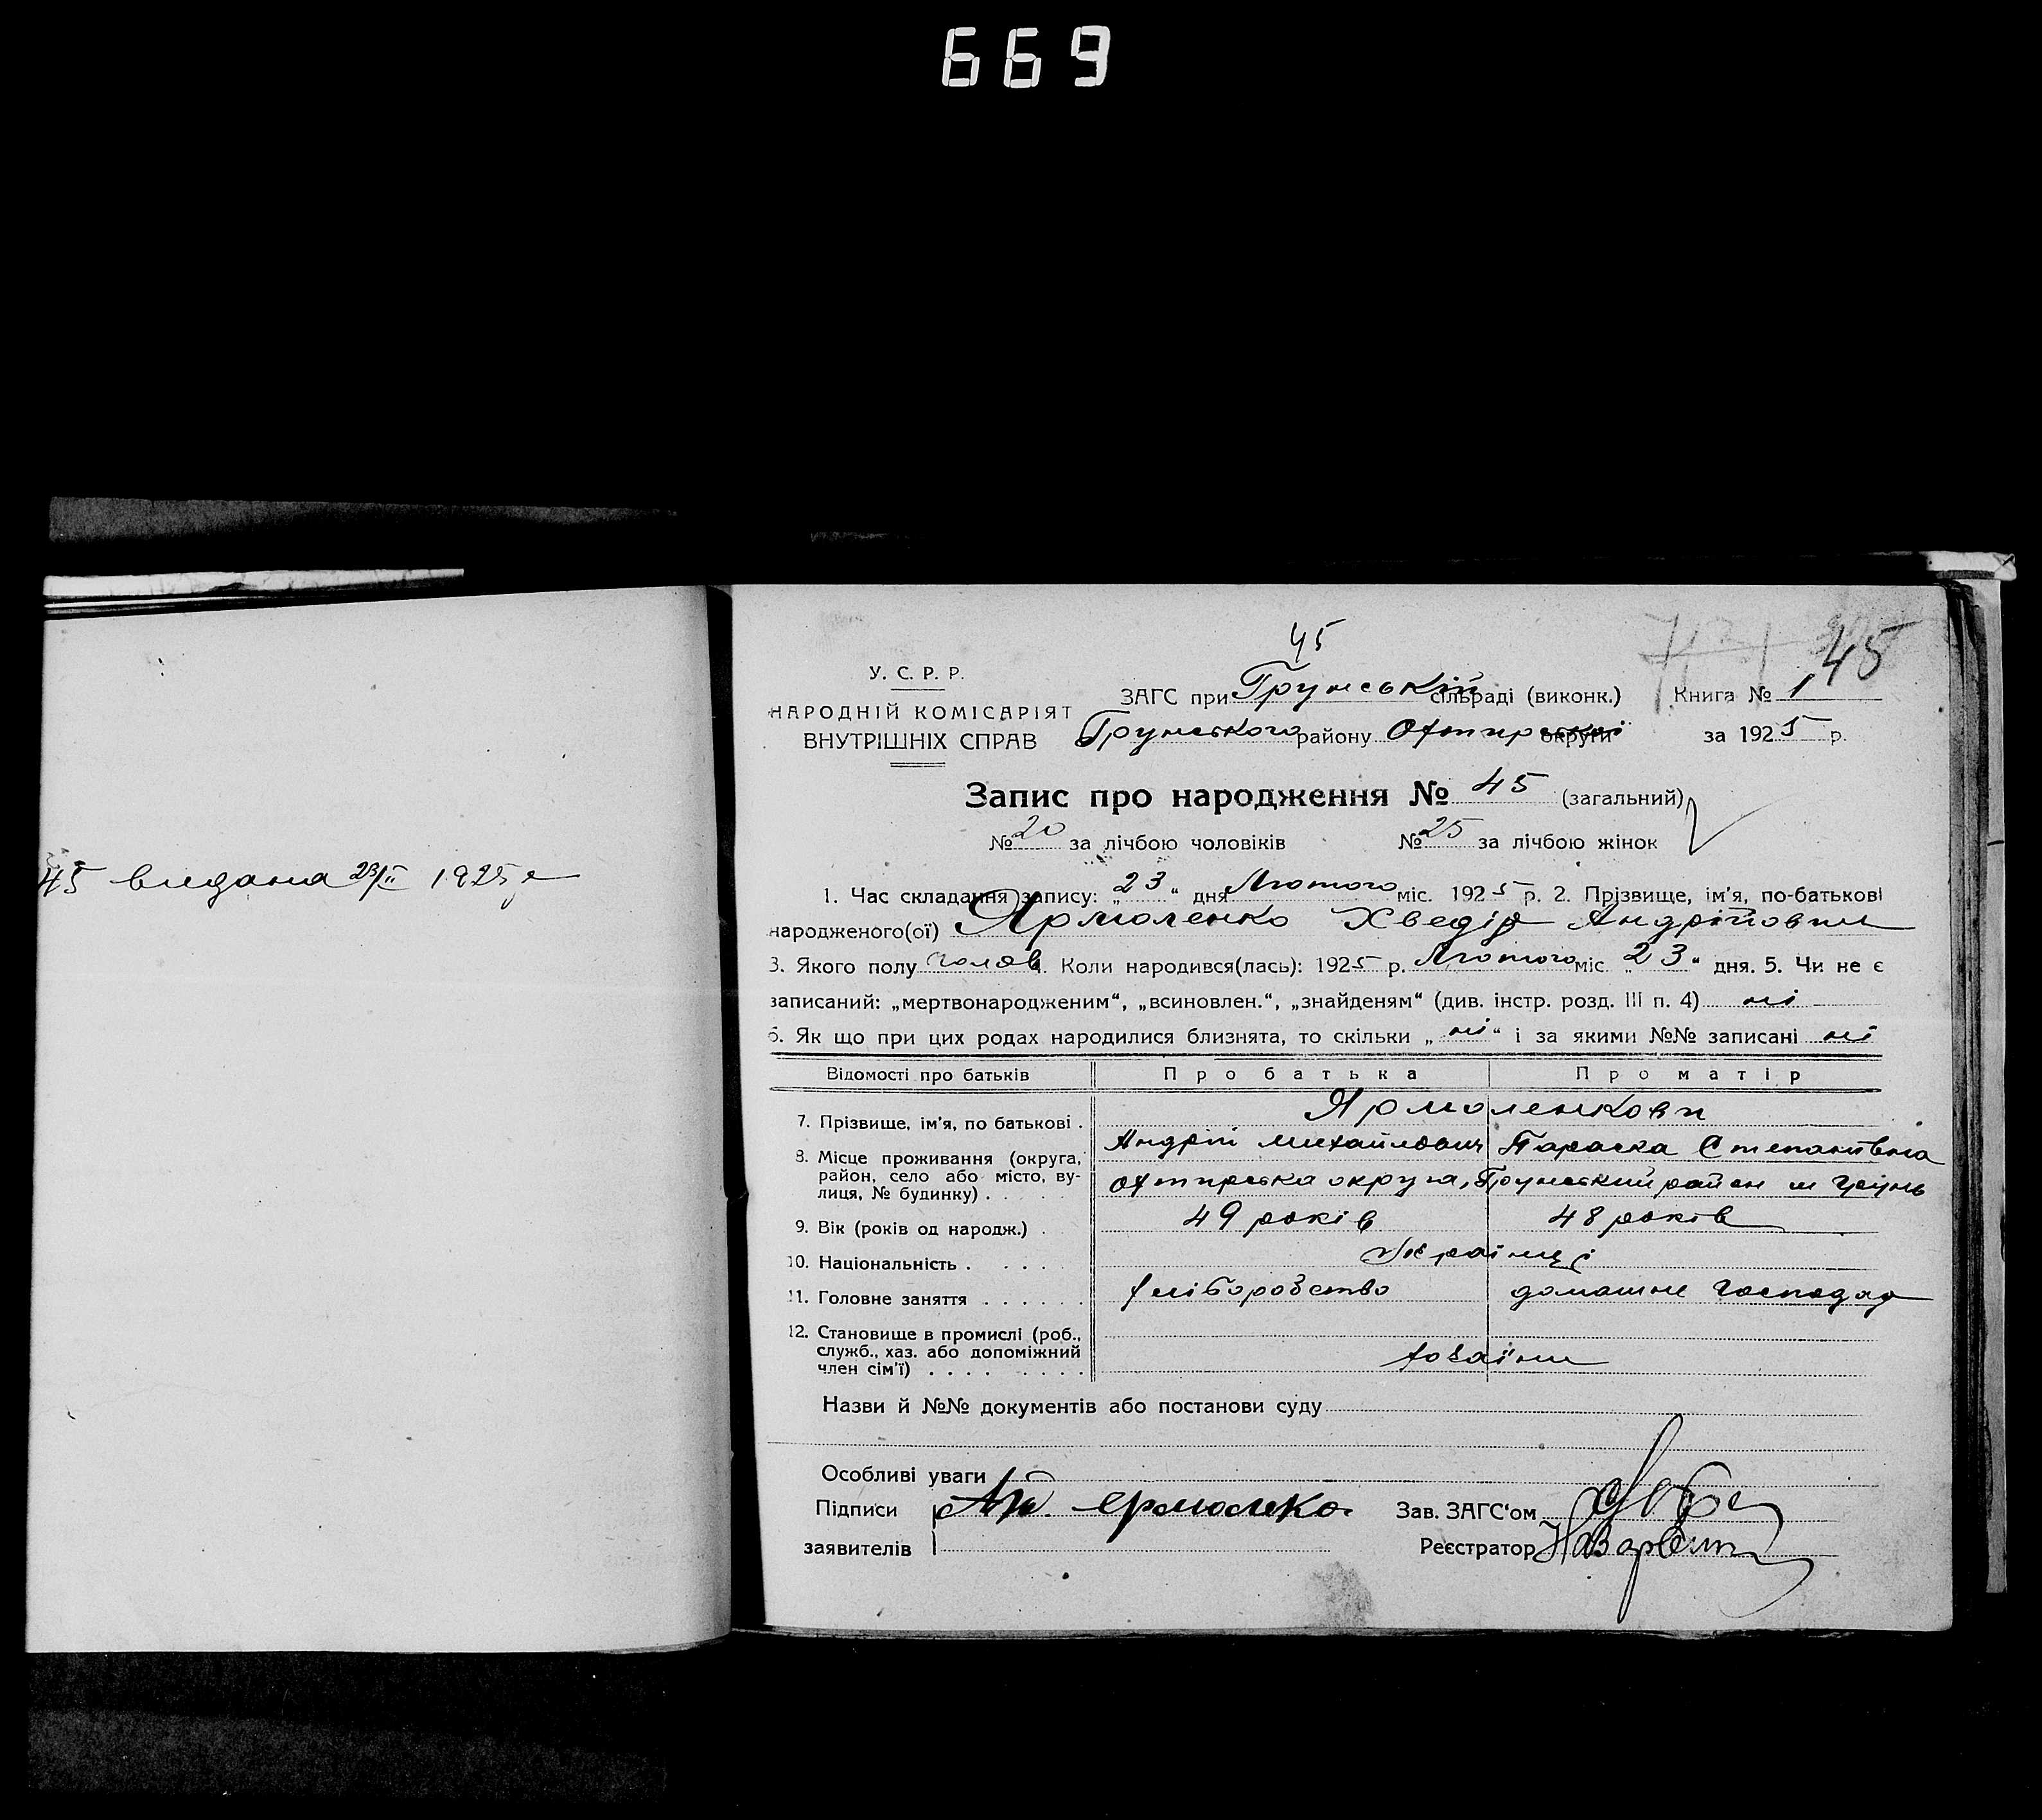 669
45
45
У. С. Р. Р.
НАРОДНІЙ КОМІСАРІЯТ
ВНУТРІШНІХ СПРАВ
ЗАГС при Грунській сільраді (виконк.) Книга № 1
Грунського району Охтирської округи за 1925 р.
Запис про народження № 45 (загальний)
№ 20 за лічбою чоловіків № 25 за лічбою жінок
45 видана 23/II 1925 р
1. Час складання запису: „23“ дня Лютого міс. 1925 р. 2. Прізвище, ім'я, по-батькові
народженого(ої) Ярмоленко Хведір Андрійович
3. Якого полу чолов. Коли народився(лась): 1925 р. Лютого міс. „23“ дня. 5. Чи не є
записаний: „мертвонародженим“, „всиновлен.“, „знайденям“ (див. інстр. розд. III п. 4) ні
6. Як що при цих родах народилися близнята, то скільки „ні“ і за якими №№ записані ні
Відомості про батьків Про батька Про матір
7. Прізвище, ім'я, по батькові . Ярмоленкови
Андрій Михайлович Параска Степанівна
8. Місце проживання (округа,
район, село або місто, ву-
лиця, № будинку) . Охтирська округа, Грунський район м Грунь
9. Вік (років од народж.) . 49 років 48 років
10. Національність . . . . . Українці
11. Головне заняття . . . . . . хліборобство домашнє господар
12. Становище в промислі (роб.,
служб., хаз. або допоміжний
член сім'ї) . . . . . . . . хозаїни
Назви й №№ документів або постанови суду
Особливі уваги
Підписи Ан. Ермоленко Зав. ЗАГС'ом
заявителів Реєстратор